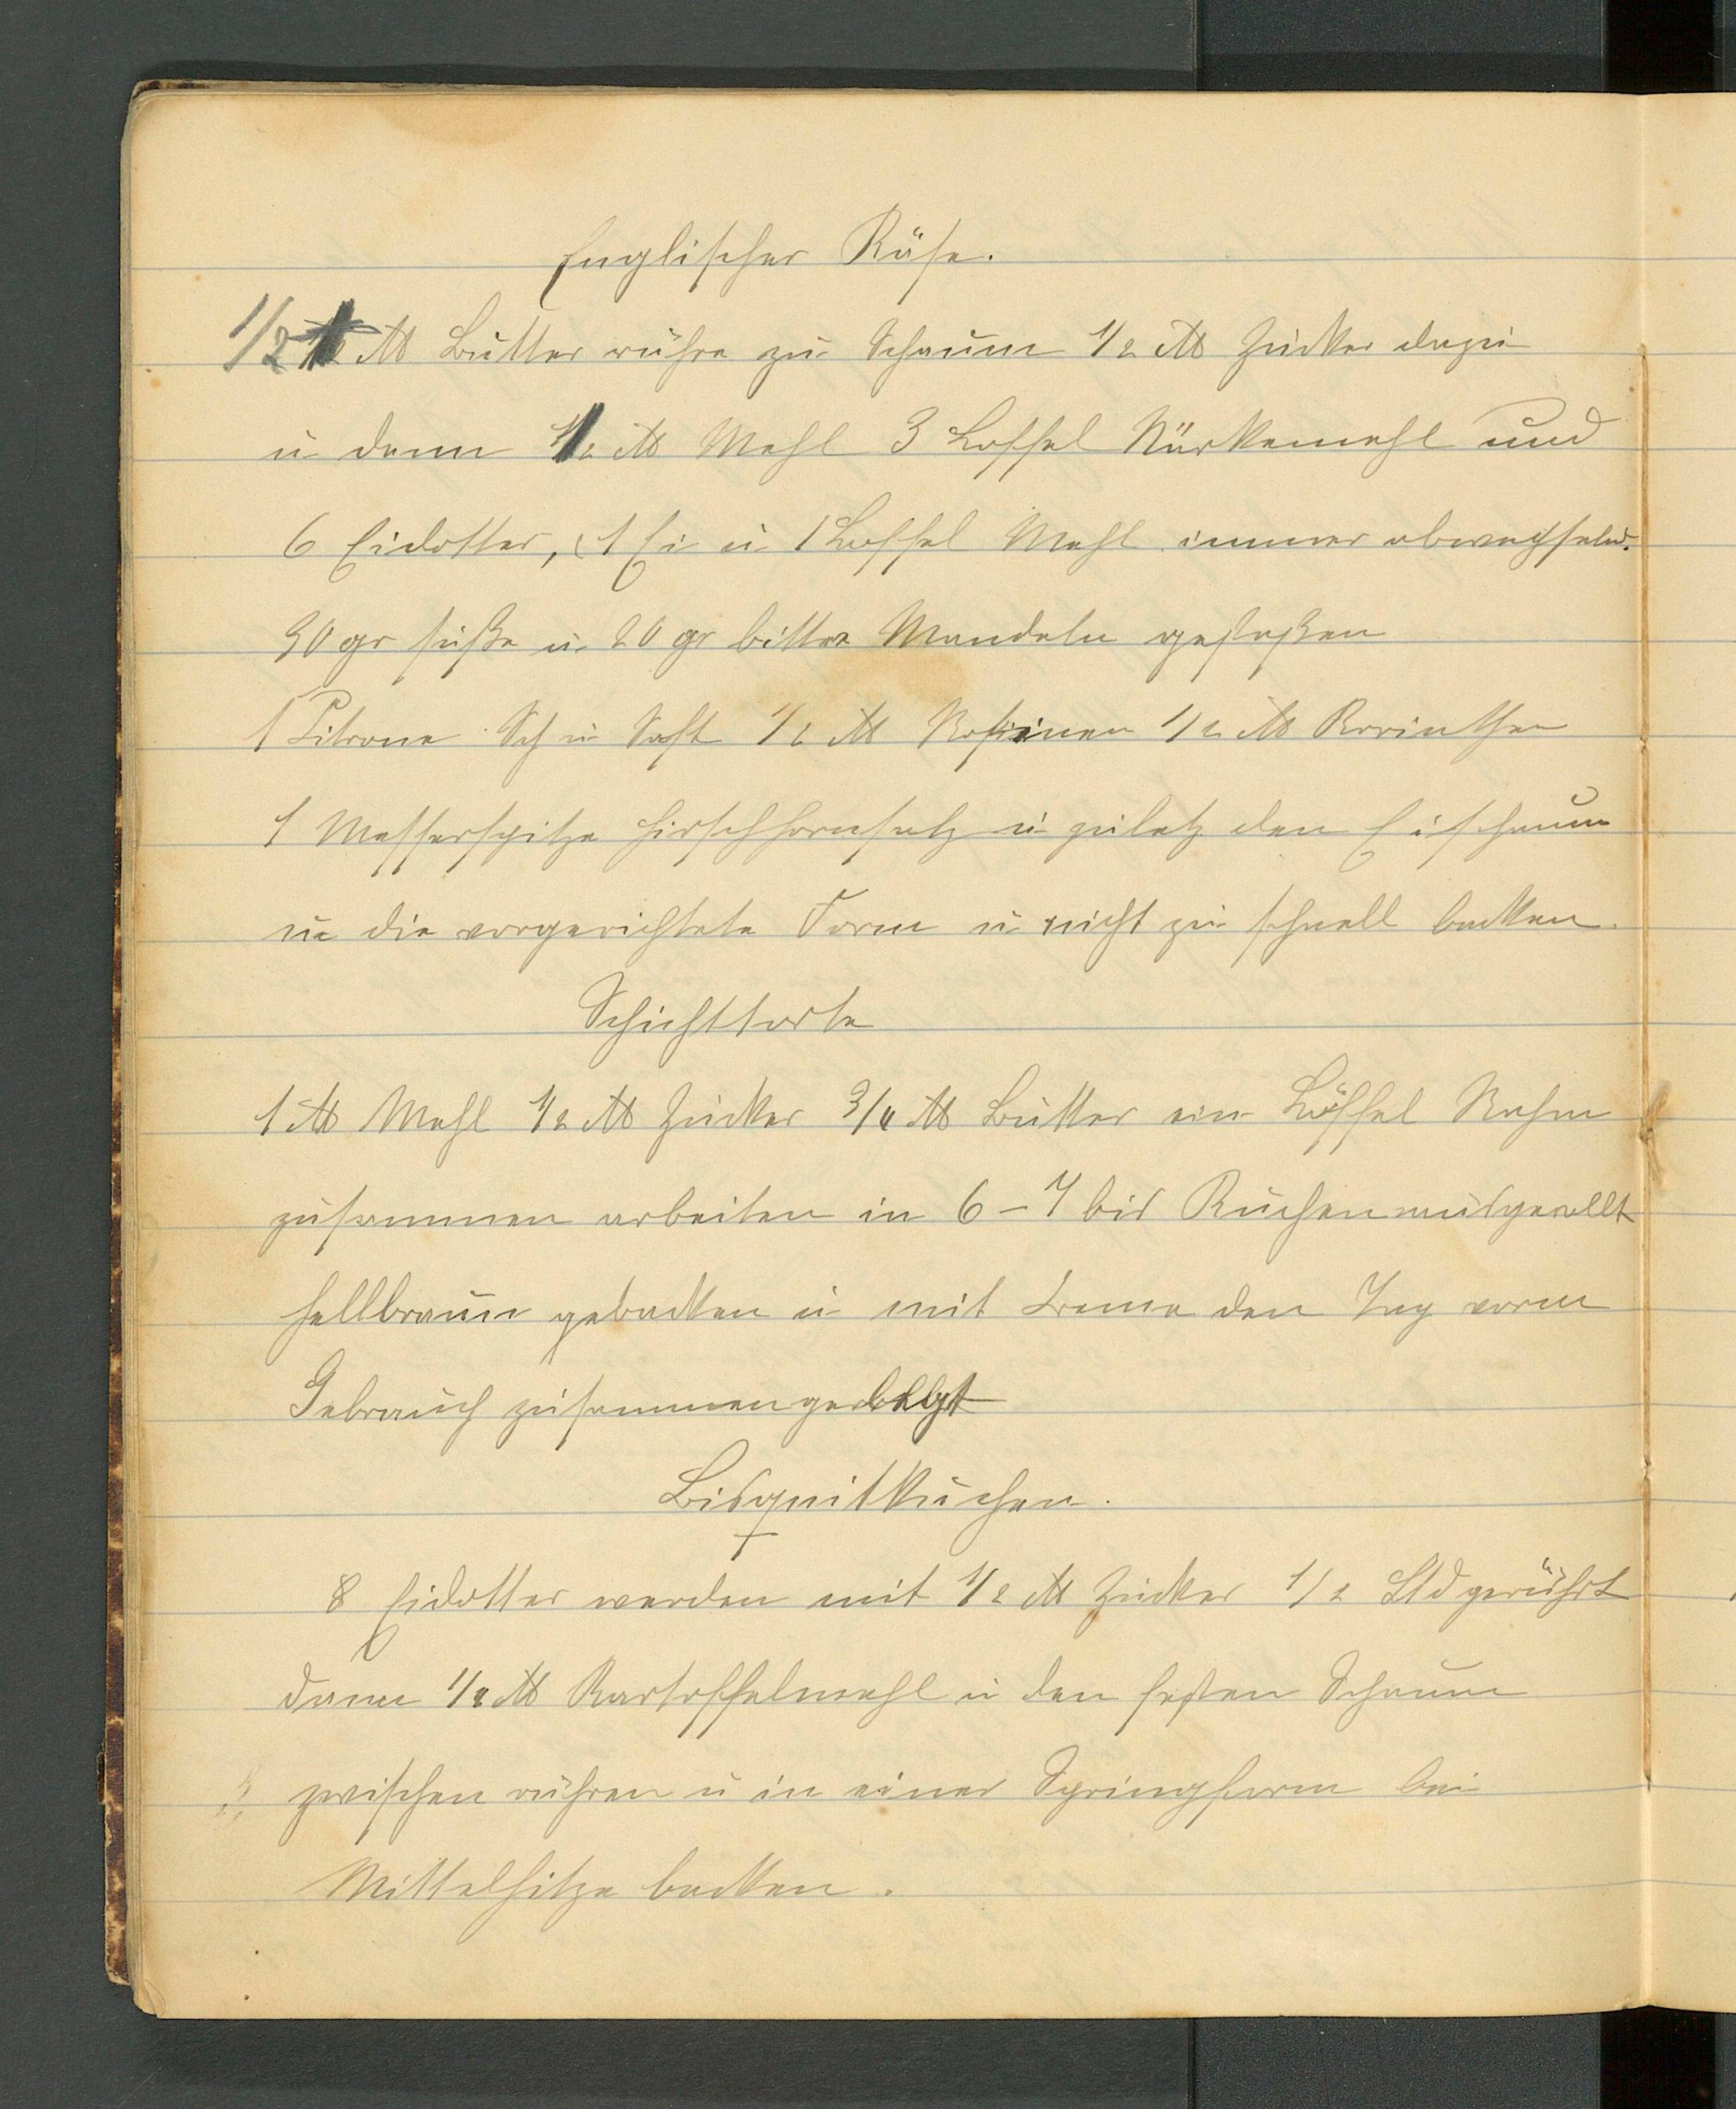 Englischer Käse.
1/2 ℔ Butter rühre zu Schaum 1/2 ℔ Zucker dazu
u dann 1/2 ℔ Mehl 3 Loffel Stärkemehl und
6 Eidotter, (1 Ei u 1 Loffel Mehl immer abwechselnd.
30 gr süße u. 20 gr bittre Mandeln gestoßen
1 Citrone Sch u Saft 1/2 ℔ Rosinen 1/2 ℔ Korinthen
1 Messerspitze Hirschhornsalz u zuletz den Eischaum
in die vorgerichtete Form u nicht zu schnell backen.
Schichttorte
1 ℔ Mehl 1/2 ℔ Zucker 3/4 ℔ Butter ein Löffel Rahm
zusammen arbeiten in 6-7 bis Kuchen ausgerollt
hellbraun gebacken u mit Creme den Tag vorm
Gebrauch zusammengelegt
Bisquitkuchen.
8 Eidotter werden mit 1/2 ℔ Zucker 1/2 Std gerührt
dann 1/4 ℔ Kartoffelmehl u den festen Schaum
zwischen rühren u in einer Springform bei
Mittelhitze backen.